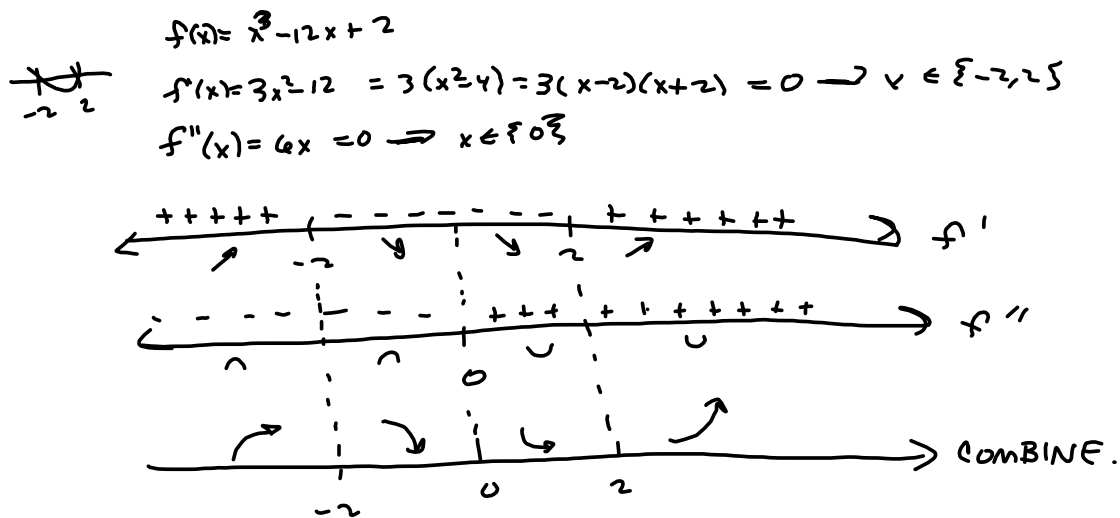 f(x)= x³-12x+2
f'(x)= 3x²-12 = 3(x²-4) = 3(x-2)(x+2) = 0 → x ∈ {-2,2}
-2 2
f"(x) = 6x = 0 → x ∈ {0}
+ + + + + - - - - - - - + + + + + +
-2 2 f'
- - - - - - - + + + + + + + + + +
∩ ∩ 0 ∪ ∪ f"
-2 0 2 COMBINE.